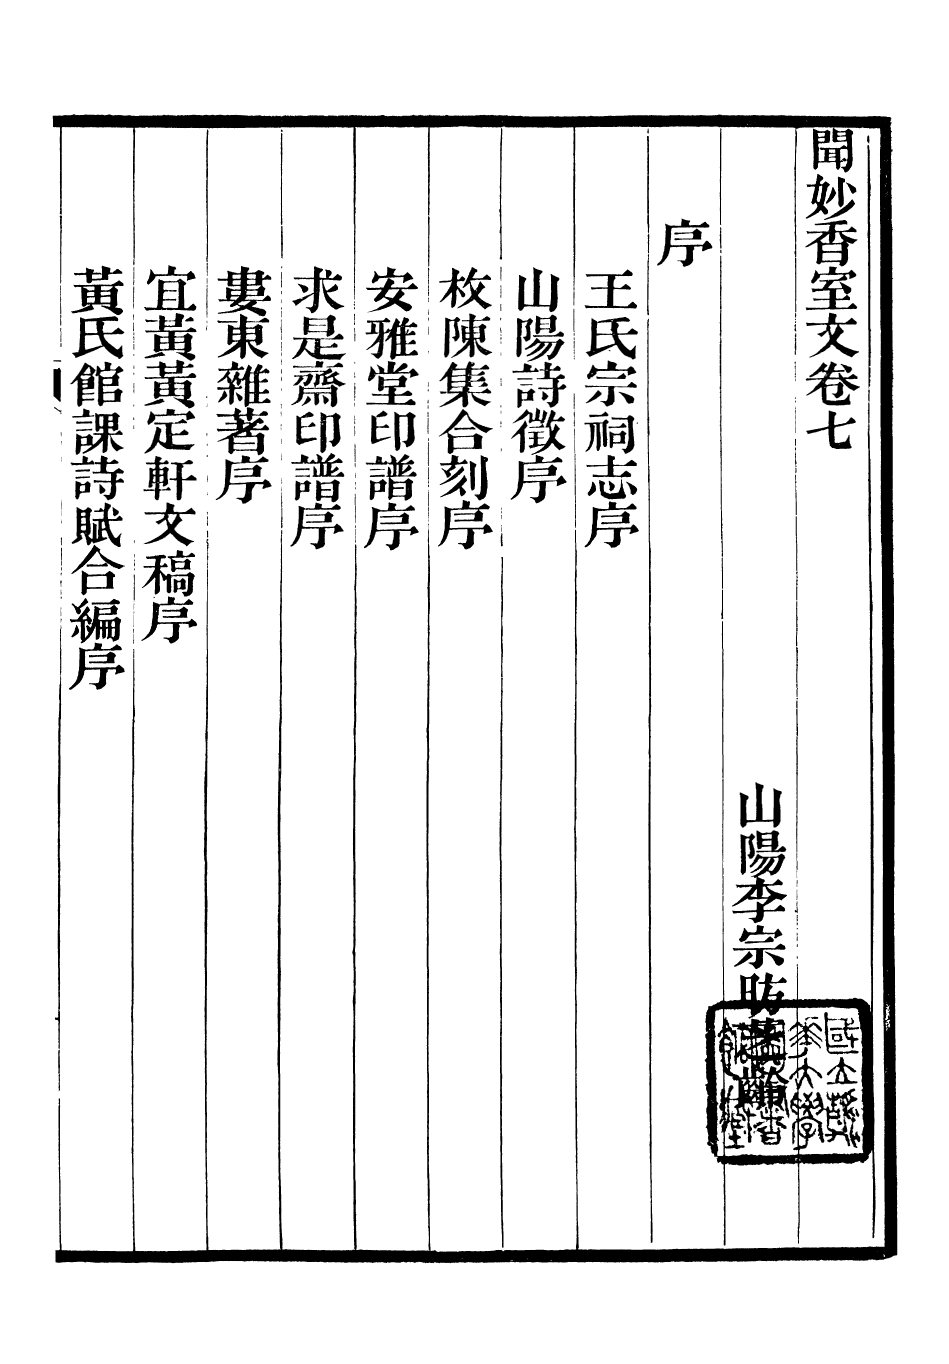 聞妙香室文卷七
山陽李宗昉芝齡
序
王氏宗祠志序
山陽詩徵序
枚陳集合刻序
安雅堂印譜序
求是齋印譜序
婁東雜著序
宜黃黃定軒文稿序
黃氏館課詩賦合編序
國立
大學